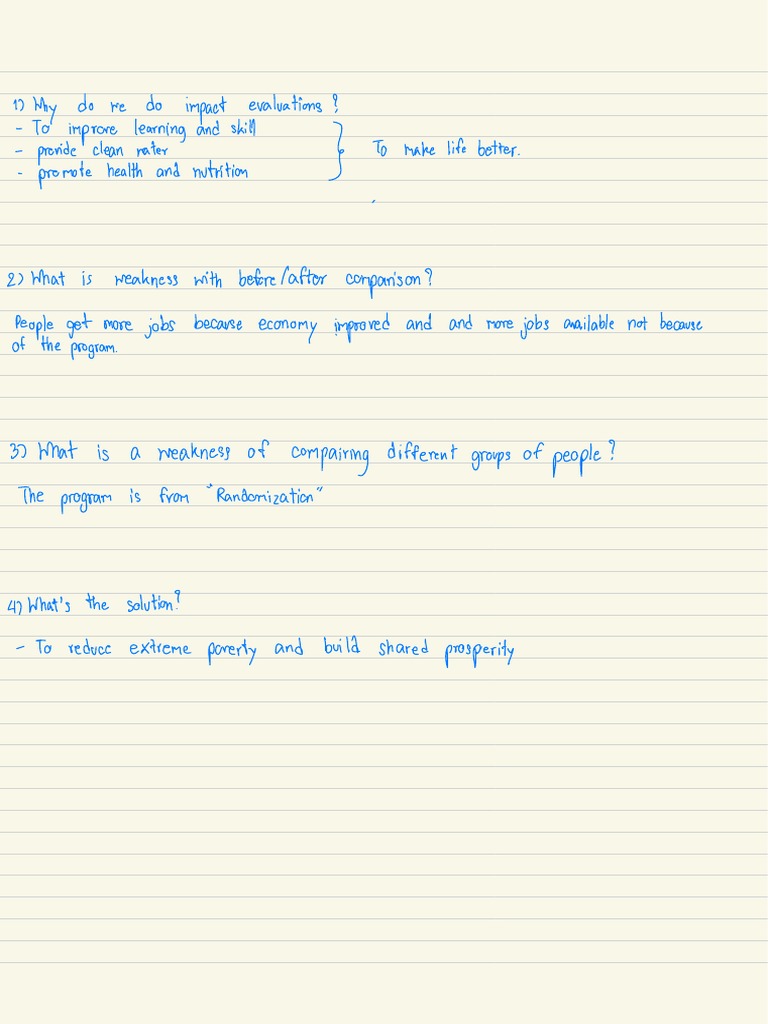 1) Why do we do impact evaluations?
- To improve learning and skill
- provide clean water
- promote health and nutrition
To make life better.
2) What is weakness with before/after comparison?
People get more jobs because economy improved and and more jobs available not because
of the program.
3) What is a weakness of compairing different groups of people?
The program is from "Randomization"
4) What's the solution?
- To reduce extreme poverty and build shared prosperity